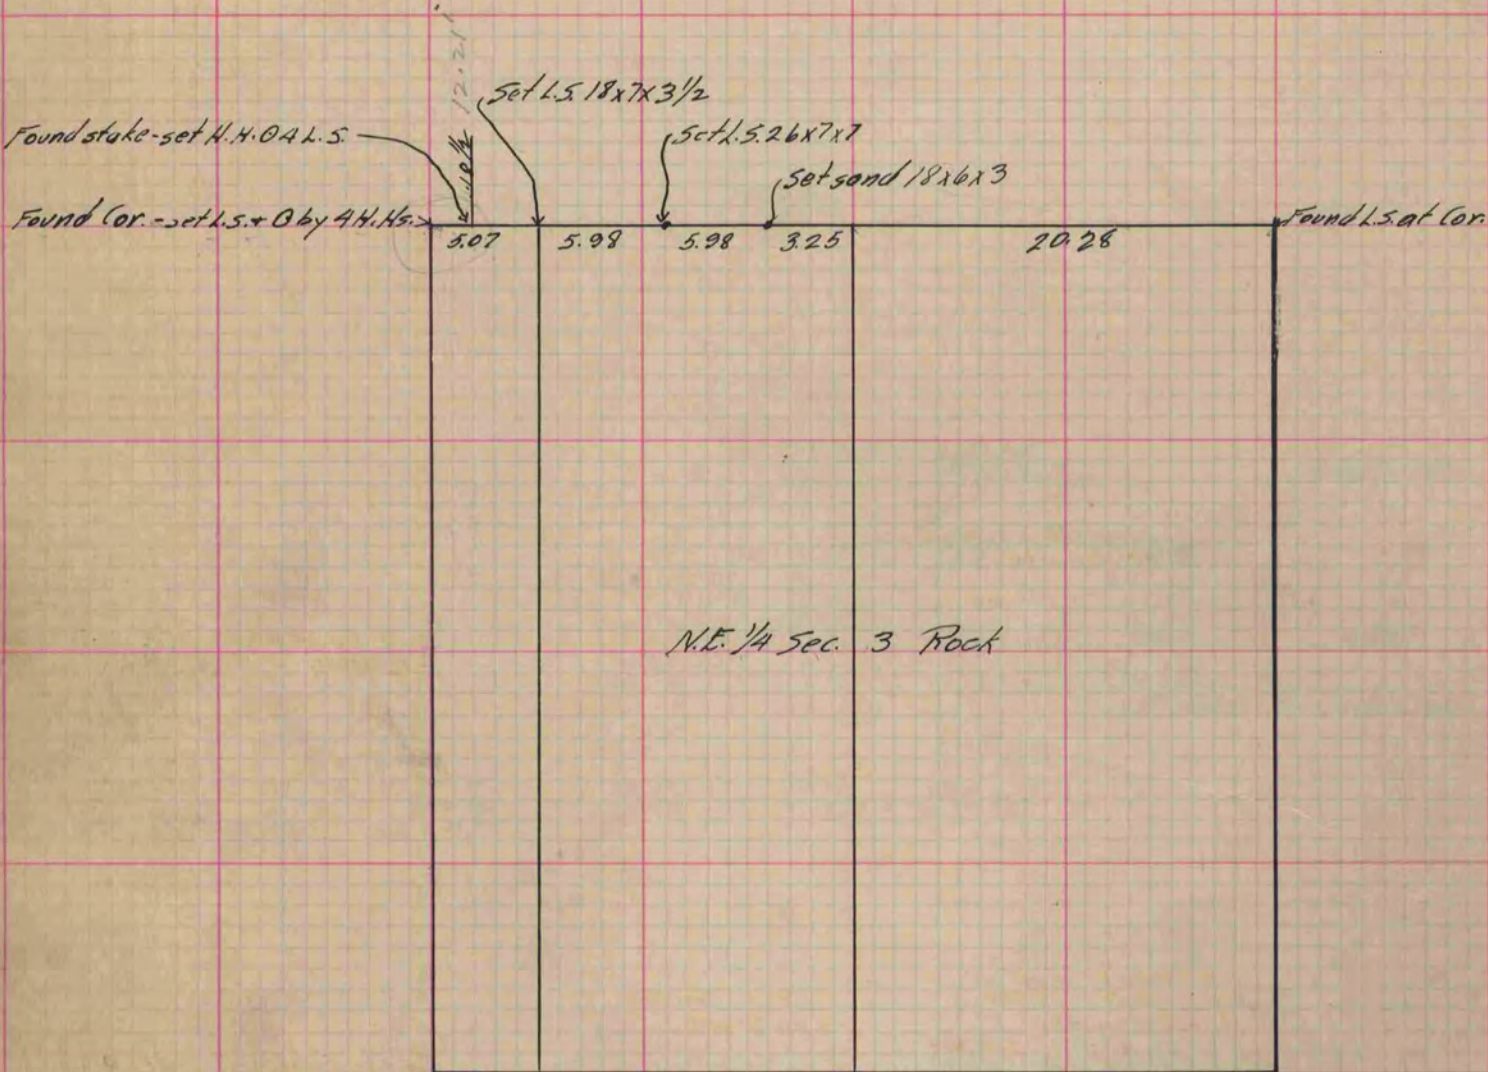 12.21
Set L.S. 18x7x3½
Found stake-set H.H. O 4 L.S.
Set L.S. 26x7x7
Set sand 18x6x3
Found Cor. - set L.S. + O by 4 H.Hs.
Found L.S. at Cor.
5.07 5.98 5.98 3.25 20.28
N.E. ¼ Sec. 3 Rock